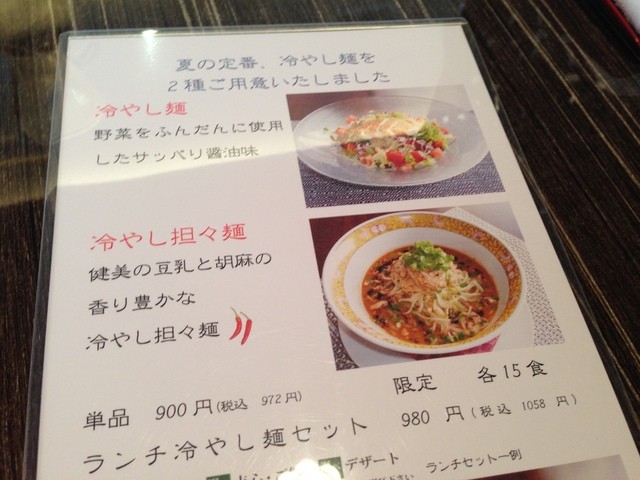 夏の定番、冷やし麺を
2種ご用意いたしました
冷やし麺
野菜をふんだんに使用
したサッパリ醬油味
冷やし担々麺
健美の豆乳と胡麻の
香り豊かな
冷やし担々麺
限定 各15食
単品 900円(税込 972円)
ランチ冷やし麺セット 980円(税込 1058円)
デザート ランチセット一例